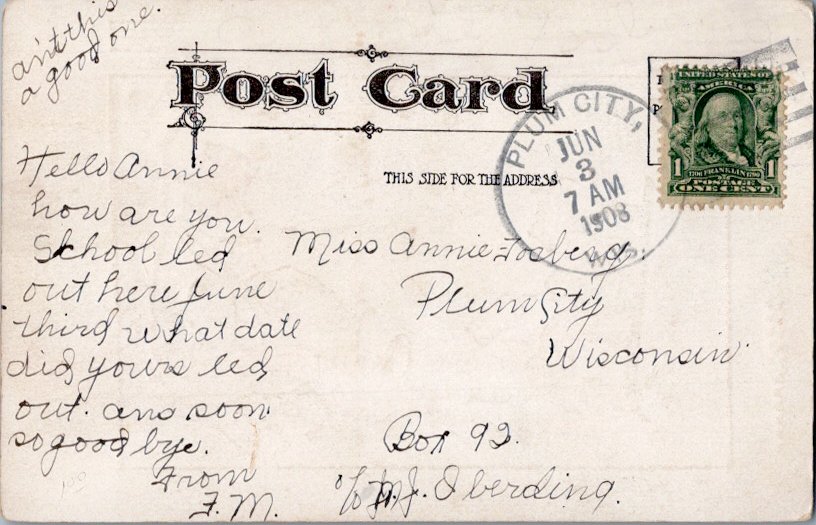 aint this
a good one.
Post Card
THIS SIDE FOR THE ADDRESS
PLUM CITY,
JUN
3
7 AM
1908
WIS.
UNITED STATES OF
AMERICA
1706 FRANKLIN 1790
1 1
POSTAGE
ONE CENT
Hello Annie
how are you.
School led
out here June
third what date
did yours led
out. ans soon
so good bye.
From
F.M.
Miss Annie Fosberg.
Plum City
Wisconsin
Box 92.
c/o J. Oberding.